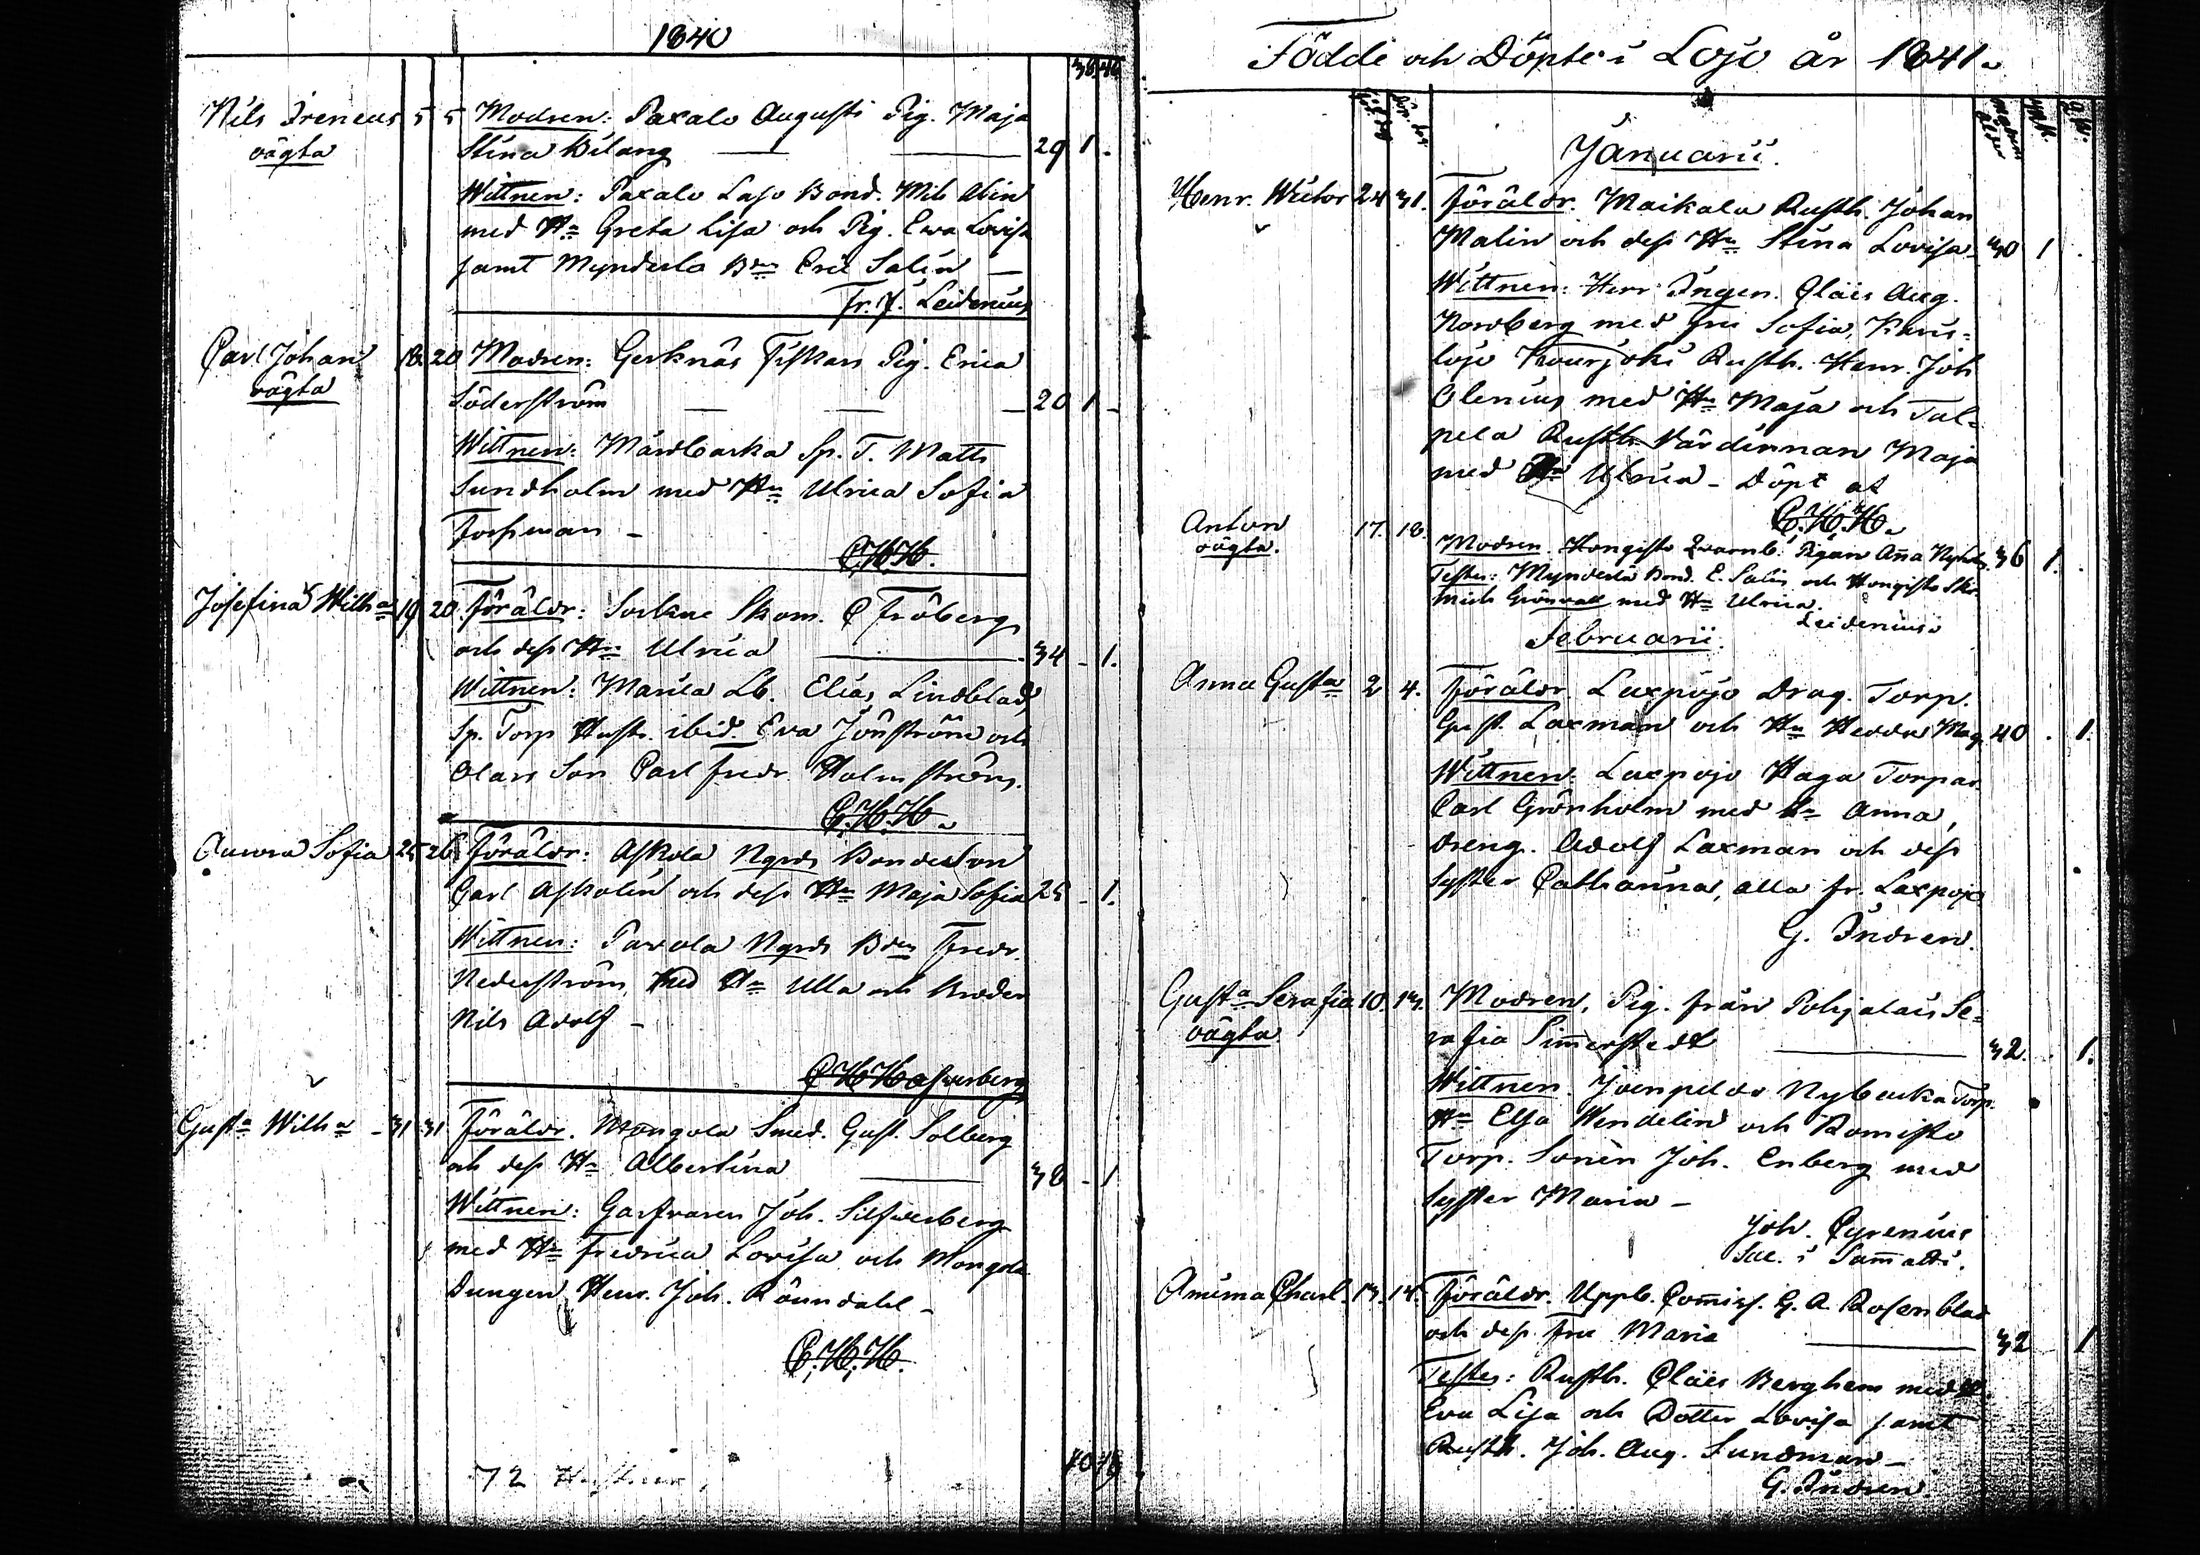 1840
36 46
Nils Ireneus 5 5 Modren: Paxalo Augusti Pig. Maja
oägta Stina Bilang — — 29 1 .
Wittnen: Paxalo Laso Bond. Mils Abin
med Hn Greta Lisa och Pig. Ewa Lovisa
samt Mynderla Bn Eric Salin —
Fr. J. Leidenius
Carl Johan 18. 20 Modren: Gerknäs Fiskars Pig. Erica
oägta Söderström — — — 20 1 -
Wittnen: Mårdbacka Sp. T. Matts
Sundholm med Hn Ulrica Sofia
Forsman -
C.H.H.
Josefina Wilha 19 20. Föräldr: Sorkne Skom. C Fröberg
och dess Hn Ulrica — 34 - 1.
Wittnen: Marila Lb. Elias Lindblad,
Sp. Torp Hustr. ibid. Eva Jönström och
Olars Son Carl Fredr. Holmström.
C.H.H.
Aurora Sofia 25 26 Föräldr: Askola Ngrds Bondeson
Carl Askolin och dess Hn Maja Sofia 25 - 1.
Wittnen: Paxola Ngrds Bden Fredr.
Nederström med Hn Ulla och Broder
Nils Adolf -
C H H Aswerberg
Gusta Wilha - 31 31 Föräldr. Mongola Smed. Gust. Solberg
och dess Hn Albertina — 38 - 1
Wittnen: Garfvaren Joh. Silfwerberg
med Hn Fredrica Lovisa och Mongola
Drengen Henr. Joh. Rönndahl -
C.H.H.
72
40 48
Födde och Döpte i Lojo år 1841.
Januarii.
Henr. Wictor 24 31. Föräldr. Maikala Rusth. Johan
Malin och dess Hn Stina Lovisa 40 1 .
Wittnen: Herr Ingen. Claës Aug.
Nordberg med fru Sofia, Karis-
lojo Kourjoki Rusth. Henr. Joh
Olenius med Hn Maja och Tal-
pela Rusth. Värdinnan Maja
med Hn Ulrica - Döpt af
C.H.H.
Anton 17. 18. Modren. Hongisto Qvarnb. Pigan Aña 36 1.
oägta. Testes: Mynderla Bond. E. Salin och Hongisto Skr.
Mich Grönvall med Hn Ulrica.
Leidenius
Februarii.
Anna Gusta 2 4. Föräldr. Laxpojo Drag. Torp.
Gust. Laxman och Hn Hedda Mag. 40 . 1.
Wittnen: Laxpojo Haga Torpar.
Carl Grönholm med Hn Anna,
Dreng. Adolf Laxman och dess
syster Catharina, alla fr. Laxpojo
G. Indren.
Gusta Serafia 10. 13. Modren, Pig. från Pohjalais Se-
oägta rafia Sim̄erstedt — 32. . 1.
Wittnen. Joenpeldo Nybacka Torp.
Hn Elsa Wendelin och Romisto
Torp. Sonen Joh. Enberg med
syster Maria -
Joh. Cyrenius
Sac. i Sam̄atti.
Amima Charl. 13. 14. Föräldr. Uppb. Com̄iss. G. A. Rosenblad
och dess fru Maria — 32 1
Testes: Rusth. Claës Berghem med H
Eva Lisa och Dotter Lovisa samt
Rusth. Joh. Aug. Sundman -
G. Indren.